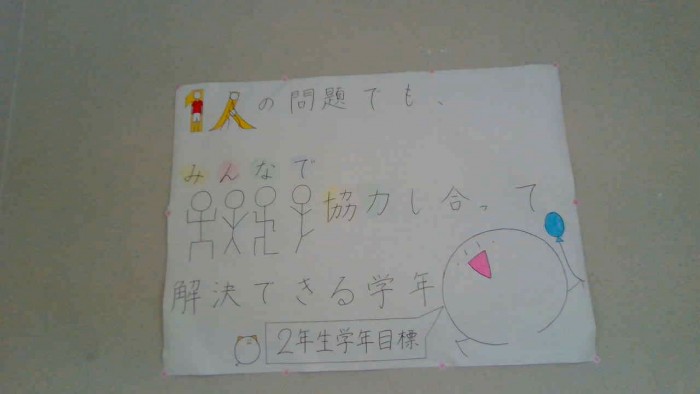 1人の問題でも、
みんなで
協力し合って
解決できる学年
2年生学年目標